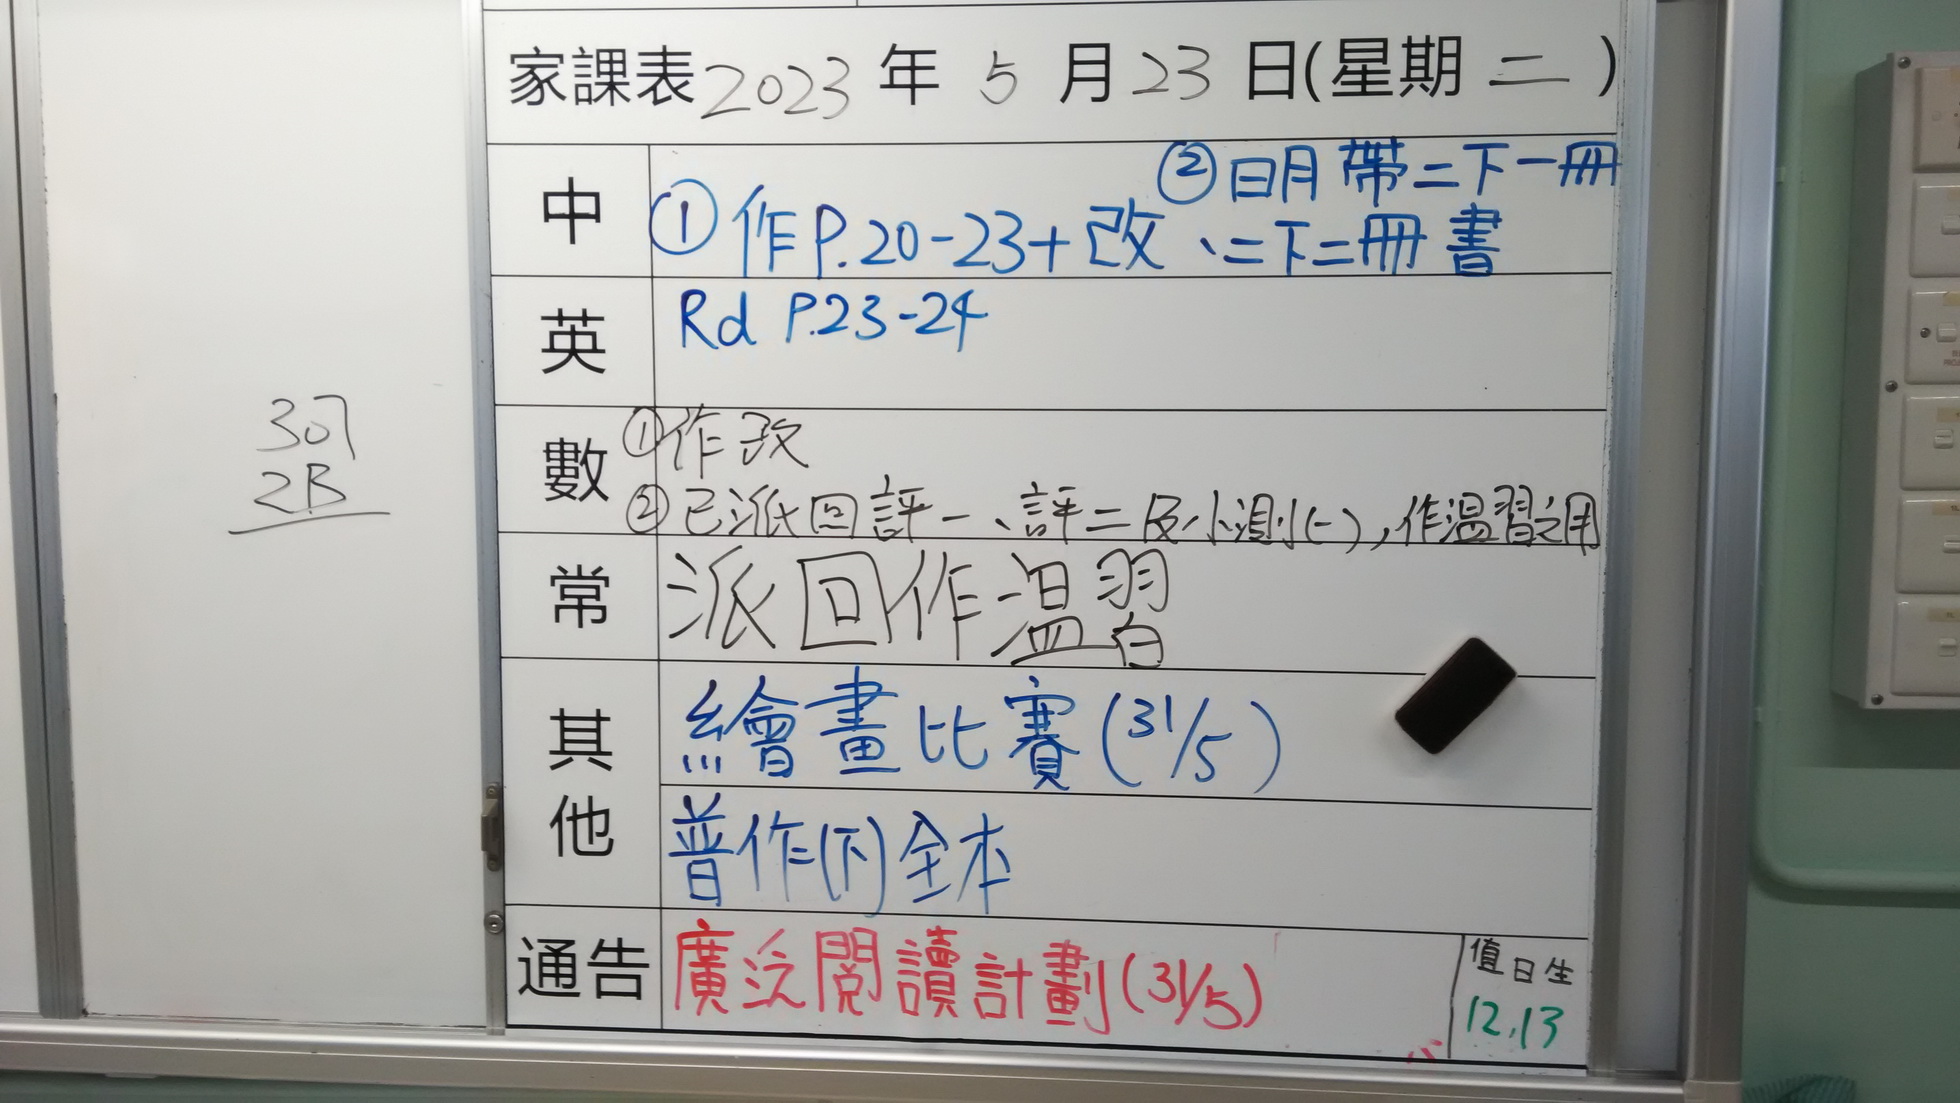 家課表 2023 年 5 月 23 日(星期 二 )
中
②明帶二下一冊
①作P.20-23+改、二下二冊書
英
Rd P.23-24
數
①作改
②已派回評一、評二及小測(一),作溫習之用
常
派回作溫習
其他
繪畫比賽(31/5)
普作(下)全本
通告
廣泛閱讀計劃(31/5)
值日生
12.13
307
2B